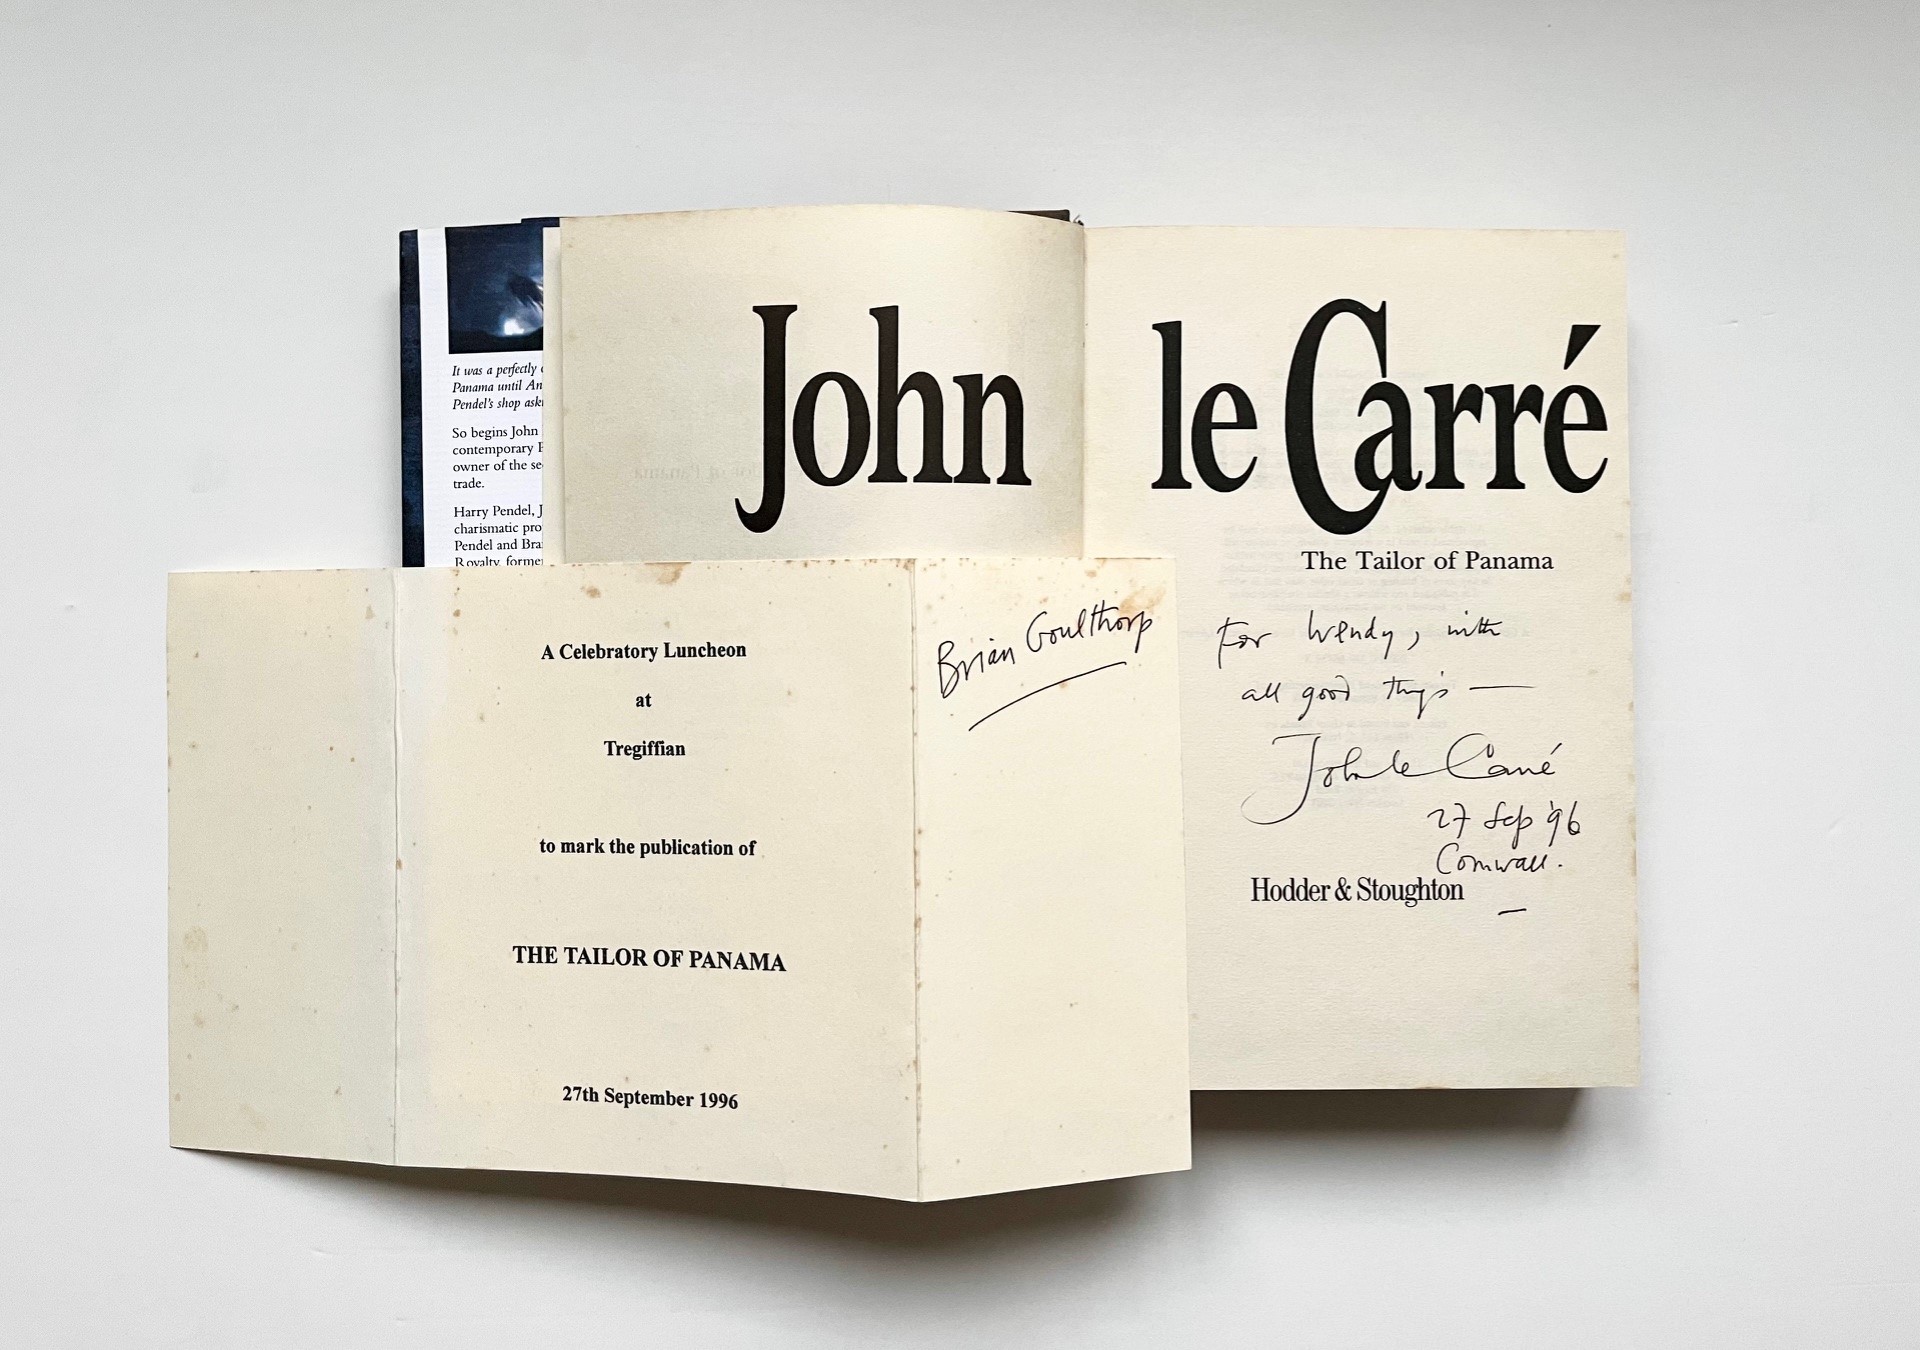 It was a perfectly
Panama until An
Pendel's shop ask
So begins John
contemporary
owner of the se
trade.
Harry Pendel, J
charismatic pro
Pendel and Bra
Royalty, forme
John le Carré
The Tailor of Panama
For Wendy, with
all good things —
John le Carré
27 Sep '96
Cornwall.
Hodder & Stoughton
A Celebratory Luncheon
at
Tregiffian
to mark the publication of
THE TAILOR OF PANAMA
27th September 1996
Brian Goulthorp